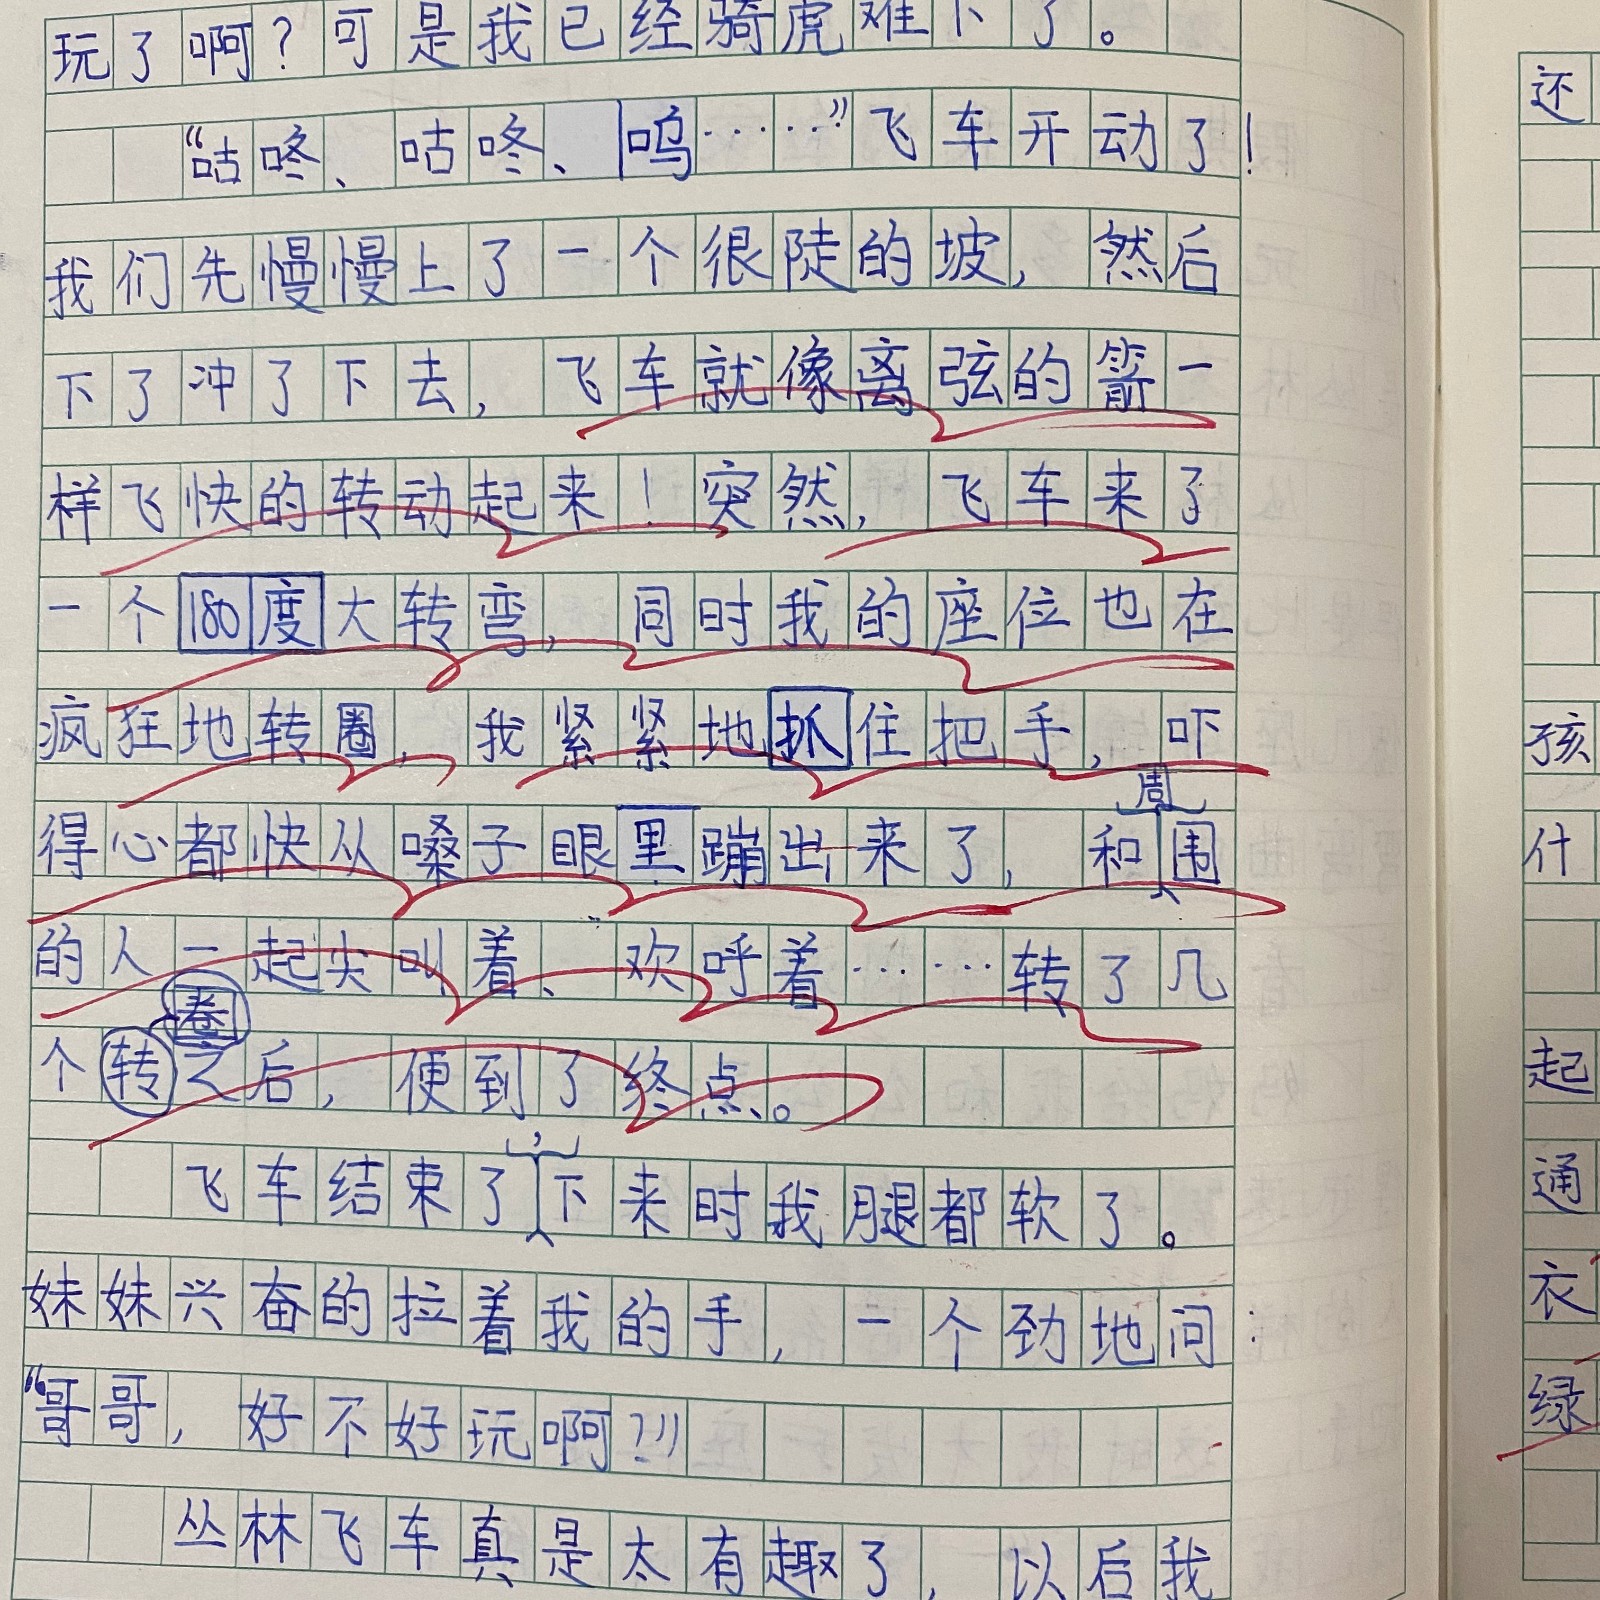 玩了啊？可是我已经骑虎难下了。
“咕咚、咕咚、呜……”飞车开动了！
我们先慢慢上了一个很陡的坡，然后
下了冲了下去，飞车就像离弦的箭一
样飞快的转动起来！突然，飞车来了
一个180度大转弯，同时我的座位也在
疯狂地转圈，我紧紧地抓住把手，吓
得心都快从嗓子眼里蹦出来了，和周围
的人一起尖叫着、欢呼着……转了几
个转圈之后，便到了终点。
飞车结束了，下来时我腿都软了。
妹妹兴奋的拉着我的手，一个劲地问：
“哥哥，好不好玩啊？！”
丛林飞车真是太有趣了，以后我
还
孩
什
起
通
衣
绿